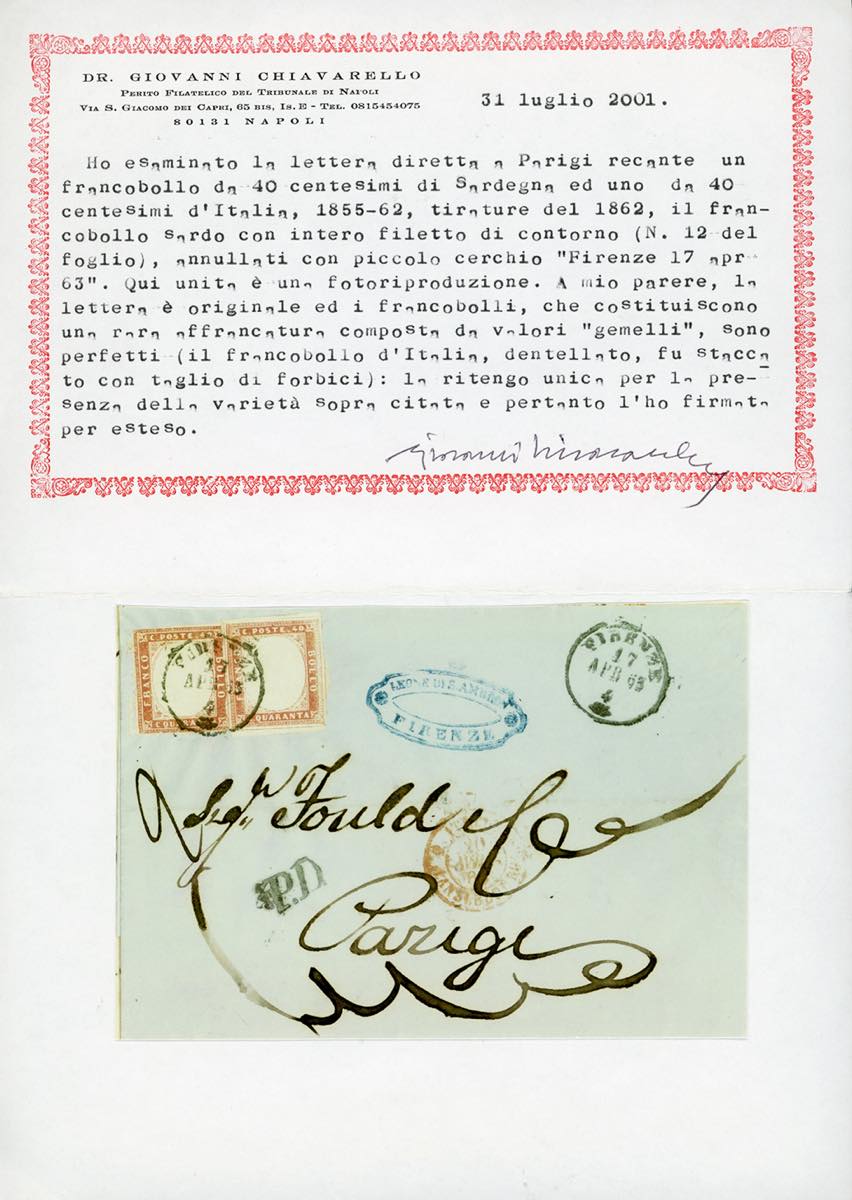 DR. GIOVANNI CHIAVARELLO
PERITO FILATELICO DEL TRIBUNALE DI NAPOLI
VIA S. GIACOMO DEI CAPRI, 65 BIS, IS. E - TEL. 0815454075
80131 NAPOLI
31 luglio 2001.
Ho esaminato la lettera diretta a Parigi recante un
francobollo da 40 centesimi di Sardegna ed uno da 40
centesimi d'Italia, 1855-62, tirature del 1862, il fran-
cobollo sardo con intero filetto di contorno (N. 12 del
foglio), annullati con piccolo cerchio "Firenze 17 apr
63". Qui unita è una fotoriproduzione. A mio parere, la
lettera è originale ed i francobolli, che costituiscono
una rara affrancatura composta da valori "gemelli", sono
perfetti (il francobollo d'Italia, dentellato, fu stacca
to con taglio di forbici): la ritengo unica per la pre-
senza della varietà sopra citata e pertanto l'ho firmata
per esteso.
C. POSTE. 4
C. POSTE. 40
FRANCO
BOLLO
BOLLO
C. QUARAN
QUARANTA
APR 63
FIRENZE
17
APR 63
4
LEONE DI S.
FIRENZE
Sig.ri Fould e C.
P.D
Parigi